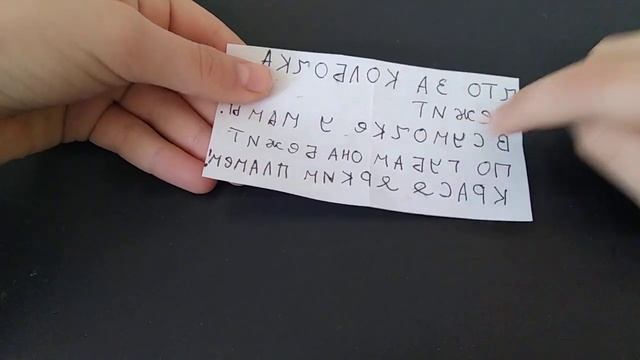 ЧТО ЗА КОЛБОЧКА
В СУМОЧКЕ У МАМЫ.
ПО ГУБАМ ОНА БЕЖИТ
КРАСЯ ЯРКИМ ПЛАМЕМ!